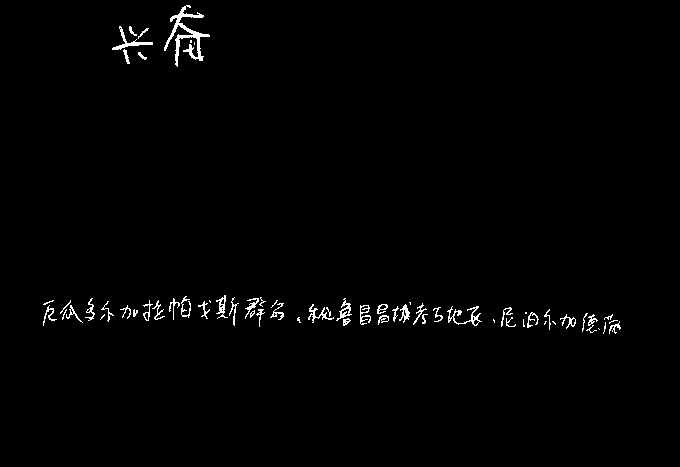 兴奋
厄瓜多尔加拉帕戈斯群岛、秘鲁昌昌城考古地区、尼泊尔加德满